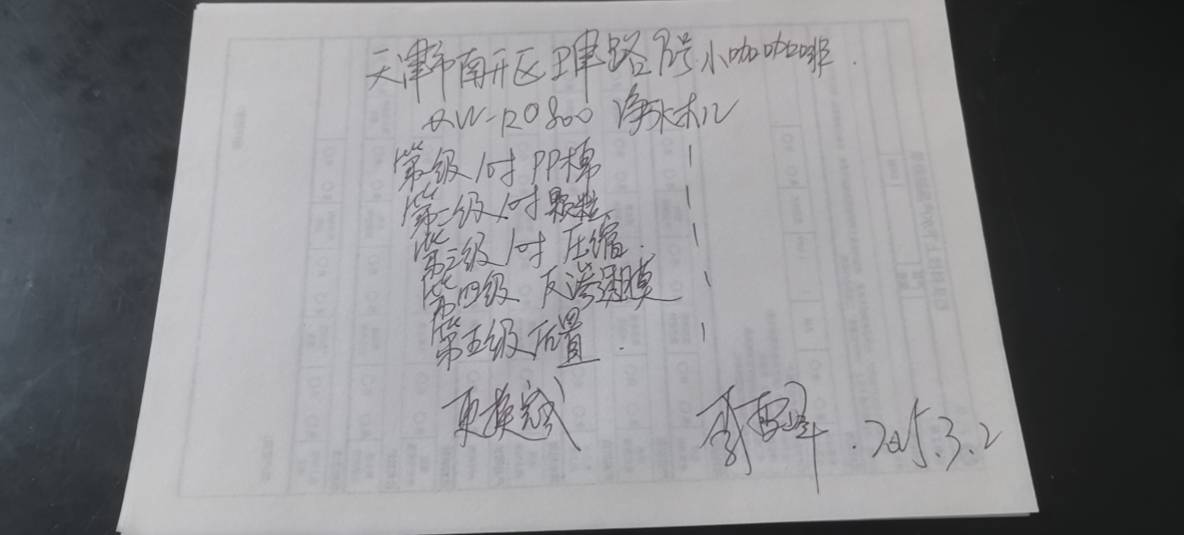 天津市南开区 路 号小咖咖啡.
RO800 净水机
第一级 10寸 PP棉 1
第二级 10寸 颗粒 1
第三级 10寸 压缩. 1
第四级 反渗透膜 1
第五级 后置. 1
更换完成
2025.3.2